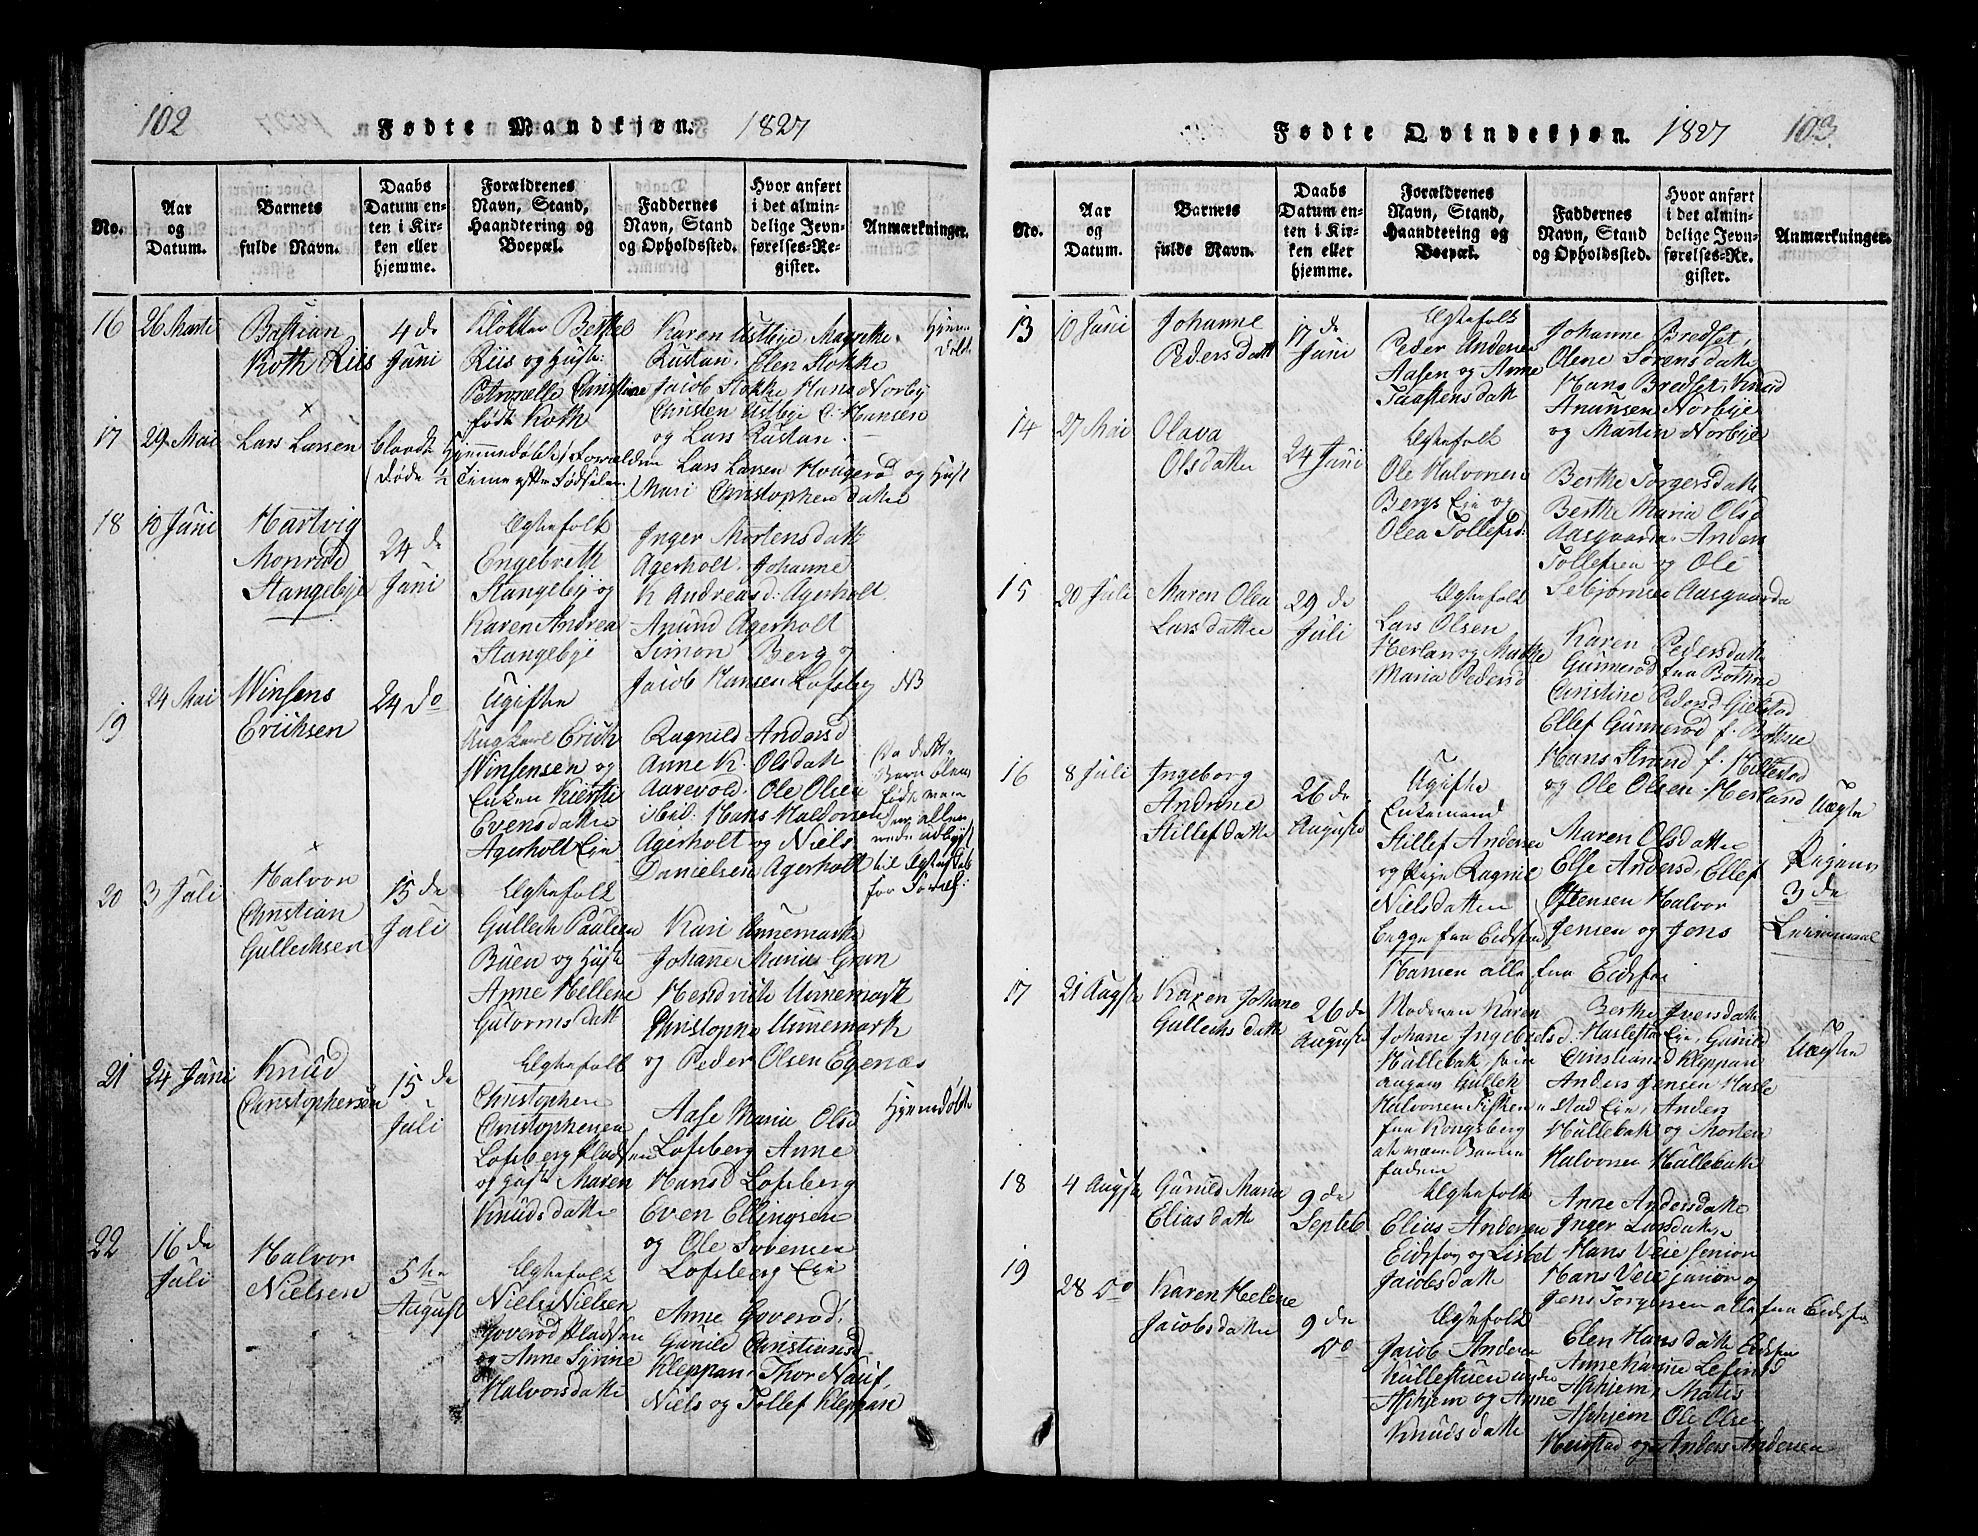 102
Fødte Mandkjøn. 1827
No.
Aar
og
Datum.
Barnets
fulde Navn.
Daabs
Datum en-
ten i Kir-
ken eller
hjemme.
Forældrenes
Navn, Stand,
Haandtering og
Boepæl.
Faddernes
Navn, Stand
og Opholdssted.
Hvor anført
i det almin-
delige Jevn-
førelses-Re-
gister.
Anmærkninger.
16
26 Marti
Bastian
Roth Riis
4 de
Juni
Klokker Berthel
Riis og Hust:
Petronelle Christine
født Roth
Karen Ustbye, Magrethe
Rustan, Elen Stokke
Jacob Stokke Hans Norby
Christen Ustbye C. Hansen
og Lars Rustan.
Hjemme
døbt
17
29 Mai
Lars Larsen
Hjemmedøbt Forældre
Døde ½ Time efter Fødselen
Lars Larsen Hougerød og Hust
Mari Christophersdatter
18
10 Juni
Hartvig
Monrad
Stangebye
24 de
Juni
Ægtefolk
Engebreth
Stangeby og
Karen Andrea
Stangebye
Inger Mortensdatt
Agerholt. Johanne
K Andreasd: Agerholt.
Anund Agerholt
Simon Berg og
Jacob Hansen Lofsberg
19
24 Mai
Winsens
Erichsen
24 Do
Ugifte
Ungkarl Erich
Winsensen og
Enken Kiersti
Evensdatter
Agerholt Eje
Ragnild Andersd
Anne K. Olsdatt
Aarevold. Ole Olsen
Hans Haldorsen
Agerholt og Niels
Danielsen Agerholt
NB
Da dette
Barn blev
født vare
de allerede
til Ægteskab
20
3 Juli
Halvor
Christian
Gullechsen
15 de
Juli
Ægtefolk
Gullech Paulsen
Buen og Hust
Anne Hellene
Gulvormsdatt
Kari Unnemark
Johane Marie Gran
Hendrich Unnemark
Christopher Unnemark
og Peder Olsen Egenæs
21
24 Juni
Knud
Christophersen
15 de
Juli
Ægtefolk
Christopher
Christophersen
Lofsberg Pladsen
og Hust Maren
Knudsdatter
Aase Maria Olsd
Lofsberg Anne
Hansd Lofsberg
Even Ellingsen
og Ole Sørensen
Lofsberg Eje
Hjemdøbt
22
16 de
Juli
Halvor
Nielsen
5 te
August
Ægtefolk
Niels Nielsen
Goverød Pladsen
og Anne Syrine
Halvorsdatte
Anne Goverød,
Gunild Christiansd
Kleppan, Thor Nauf,
Niels og Tollef Kleppan
Fødte Qvindekjøn. 1827
103.
No.
Aar
og
Datum.
Barnets
fulde Navn.
Daabs
Datum en-
ten i Kir-
ken eller
hjemme.
Forældrenes
Navn, Stand,
Haandtering og
Boepæl.
Faddernes
Navn, Stand
og Opholdssted.
Hvor anført
i det almin-
delige Jevn-
førelses-Re-
gister.
Anmærkninger.
13
10 Juni
Johanne
Pedersdatt
17 de
Juni
Ægtefolk
Peder Andersen
Aasen og Anne
Taastensdatt
Johanne Bredset,
Olene Sørensdatt
Hans Bredset, Knud
Anunsen Norbye
og Martin Norbye
14
27 Mai
Olava
Olsdatter
24 Juni
Ægtefolk
Ole Halvorsen
Bergs Eje og
Olea Tollefsd:
Berthe Torgersdatt
Berthe Maria Olsd
Aasgaarden. Anders
Tollefsen og Ole
Sebjørnsen Aasgaarden
15
20 Juli
Maren Olea
Larsdatter
29 de
Juli
Ægtefolk
Lars Olsen
Herlan og Marthe
Maria Pedersd
Karen Pedersdatt
Gunnerød fra Bothne
Christine Pedersd Gielstad
Ellef Gunnerød f. Bothne
Hans Strand f. Hillestad
og Ole Olsen Herland
16
8 Juli
Ingeborg
Andrine
Stillefsdatte
26 de
August
Ugifte
Enkemand
Stillef Andersen
og Pige Ragnil
Nielsdatter
begge fra Eidsfos
Maren Olsdatte
Else Andersd, Ellef
Oftensen Halvor
Jensen og Jens
Hansen alle fra Eidsfos
Uægte
Pigens
3 de
Leiermaal
17
21 Augste
Karen Johane
Gullechsdatt
26 de
August
Moderen Karen
Johane Ingebretsd.
Hullebak
angav Gullek
Halvorsen Fisken
fra Kongsberg
at være Barne
faderen
Berthe Iversdatt
Haslestad Eje, Gunild
Christiansd Kleppan
Anders Jensen Hasle
stad Eje, Anders
Hullebak og Morten
Halvorsen Hullebak
Uægte
18
4 Augste
Gunild Maria
Eliasdatt
9 de
Septeb
Ægtefolk
Elias Andersen
Eidsfos og Lisbet
Jacobsdatte
Anne Andersdatte
Inger Larsdatter
Hans Veie senior
Hans Veie junior og
Jens Torgersen alle fra Eidsfos
19
28 Do
Karen Helene
Jacobsdatter
9 de
Do
Ægtefolk
Jacob Andersen
Kullestuen under
Aphjem og Anne
Knudsdatte
Elen Hansdatte Eidsfos
Anne Karine Lefsind
Aphjem, Mates
Aphjem Ole Olsen
Heistad og Anders Andersen